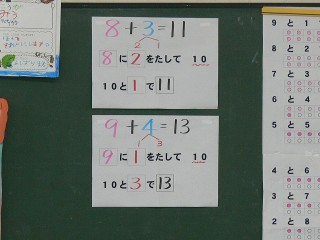 8+3=11
2 1
8に2をたして 10
10と1で11
9+4=13
1 3
9に1をたして 10
10と3で13
9 と 1
8 と 2
7 と 3
6 と 4
5 と 5
4 と 6
3 と 7
2 と 8